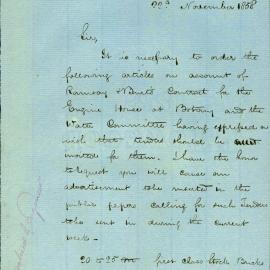 22d November 1858
Sir,
It is necessary to order the
following articles on account of
Ramsay & Burts Contract for the
Engine House at Botany and the
Water Committee having expressed a
wish that tenders should be
invited for them. I have the honor
to request you will cause an
advertisement to be inserted in the
public papers calling for such tenders
to be sent in during the current
week.
20 to 25 first class Stock Bricks